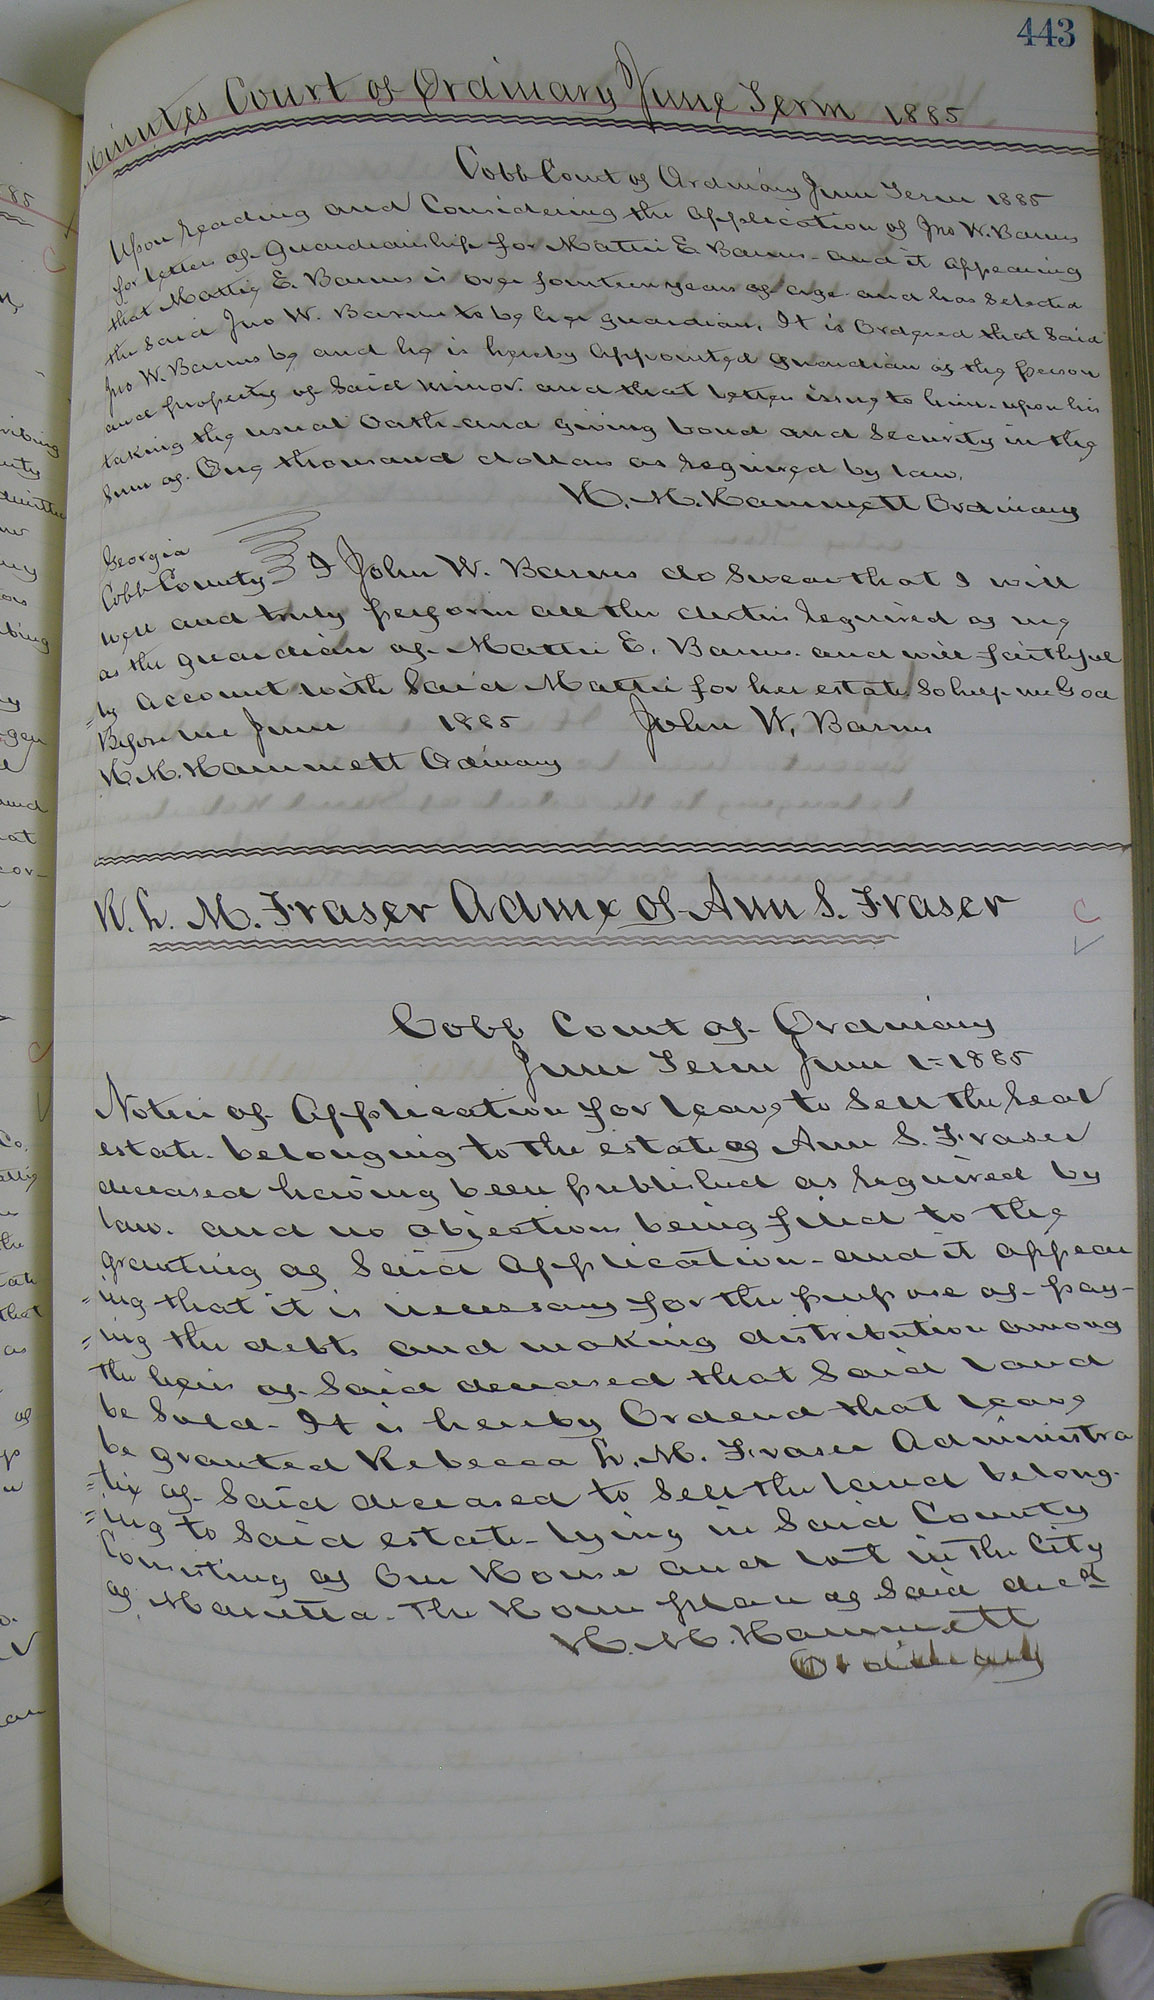 443
Minutes Court of Ordinary June Term 1885
Cobb Court of Ordinary June Term 1885
Upon reading and Considering the application of Jno W. Barns
for letters of Guardianship for Mattie E. Barns and it appearing
that Mattie E. Barns is over fourteen years of age and has Selected
the said Jno W. Barns to be her guardian. It is Ordered that Said
Jno W. Barns be and he is hereby appointed guardian of the person
and property of Said minor. and that letters issue to him upon his
taking the usual Oath and giving bond and Security in the
Sum of One thousand dollars as required by law.
H. M. Hammett Ordinary
Georgia
Cobb County I John W. Barns do Swear that I will
well and truly perform all the duties required of me
as the guardian of Mattie E. Barns and will faithful
=ly account with Said Mattie for her estate So help me God
Before me June 1885 John W. Barns
H. M. Hammett Ordinary
R. L. M. Fraser Admx of Ann S. Fraser
C
Cobb Court of Ordinary
June Term June 1-1885
Notice of Application for leave to Sell the real
estate belonging to the estate of Ann S. Fraser
deceased having been published as required by
law. and no objection being filed to the
granting of Said application and it appear
=ing that it is necessary for the purpose of pay-
=ing the debts and making distribution among
the heirs of Said deceased that Said land
be Sold. It is hereby Ordered that leave
be granted Rebecca L. M. Fraser Administra
=trix of Said deceased to Sell the land belong-
=ing to Said estate lying in Said County
Consisting of One House and lot in the City
of Marietta. The Home place of Said decd
H. M. Hammett
Ordinary